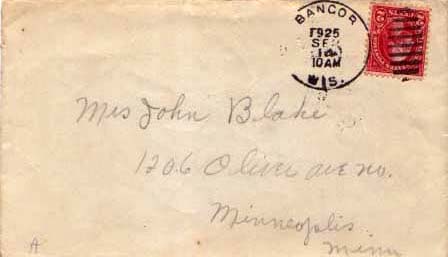 BANGOR
1925
SEP
10AM
WIS.
Mrs John Blake
1206 Oliver ave no.
Minneopolis
Minn
A